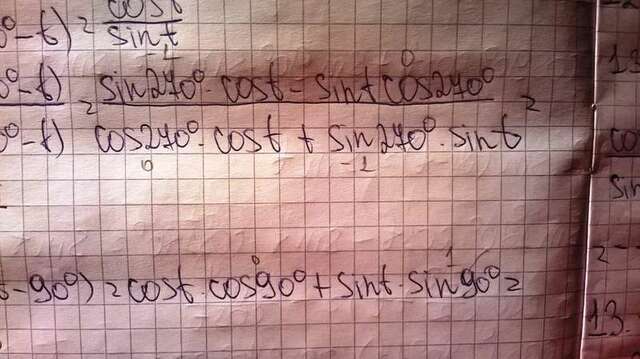 0°-t) = cost/sint
0°-t) = sin270°·cost - sint cos270° =
-1 0
0°-t) cos270°·cost + sin270°·sint
0 -1
t-90°) = cost·cos90° + sint·sin90° =
0 1
13
co
sin
= -
13.